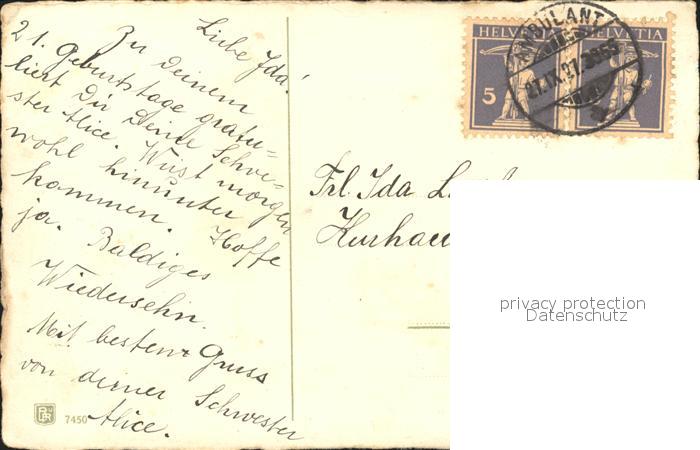 Liebe Ida!
Zu Deinem
21. Geburtstage gratu-
liert Dir Deine Schwe-
ster Alice. Wirst morgen
wohl hinunter
kommen. Hoffe
ja. Baldiges
Wiedersehn.
Mit bestem Gruss
von deiner Schwester
Alice.
HELVETIA
HELVETIA
5
AMBULANT
Frl. Ida
7450
privacy protection
Datenschutz